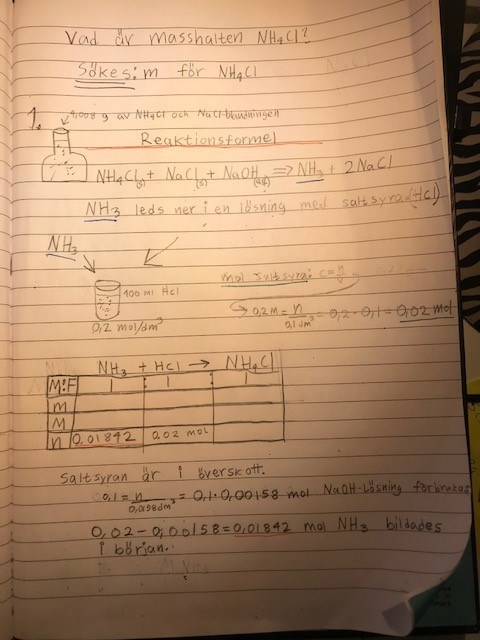 Vad är masshalten NH₄Cl?
Sökes: m för NH₄Cl
1. 4,008 g av NH₄Cl och NaCl-blandningen
Reaktionsformel
NH₄Cl(s) + NaCl(s) + NaOH(aq) => NH₃ + 2NaCl
NH₃ leds ner i en lösning med saltsyra(HCl)
NH₃
mol saltsyra: c=n/v
400 ml HCl
0,2M = n/0,1dm³ = 0,2·0,1 = 0,02 mol
0,2 mol/dm³
NH₃ + HCl → NH₄Cl
M:F 1 1 1
m
M
n 0,01842 0,02 mol
Saltsyran är i överskott.
0,1 = n/0,0158dm³ = 0,1·0,00158 mol NaOH-Lösning förbrukas
0,02-0,00158=0,01842 mol NH₃ bildades
i början.